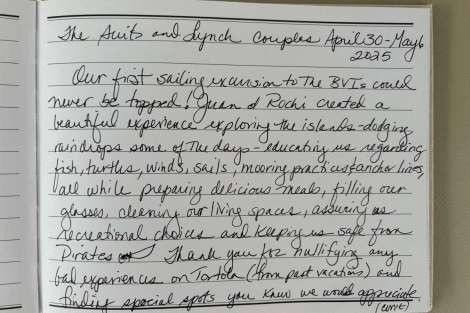 The Suits and Lynch Couples April 30-May 6
2025
Our first sailing excursion to The BVIs could
never be topped! Juan & Rochi created a
beautiful experience exploring the islands-dodging
raindrops some of the days-educating us regarding
fish, turtles, winds, sails, mooring practices & anchor lines,
all while preparing delicious meals, filling our
glasses, cleaning our living spaces, assuring us
recreational choices and keeping us safe from
Pirates Thank you for nullifying any
bad experiences on Tortola (from past vacations) and
finding special spots you knew we would appreciate
(cont)